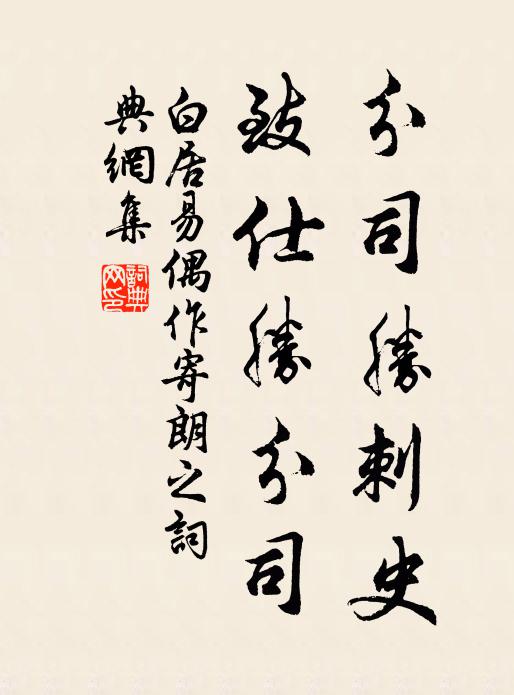 分司勝刺史
致仕勝分司
白居易偶作寄朗之詞
典網集
詞典
网印